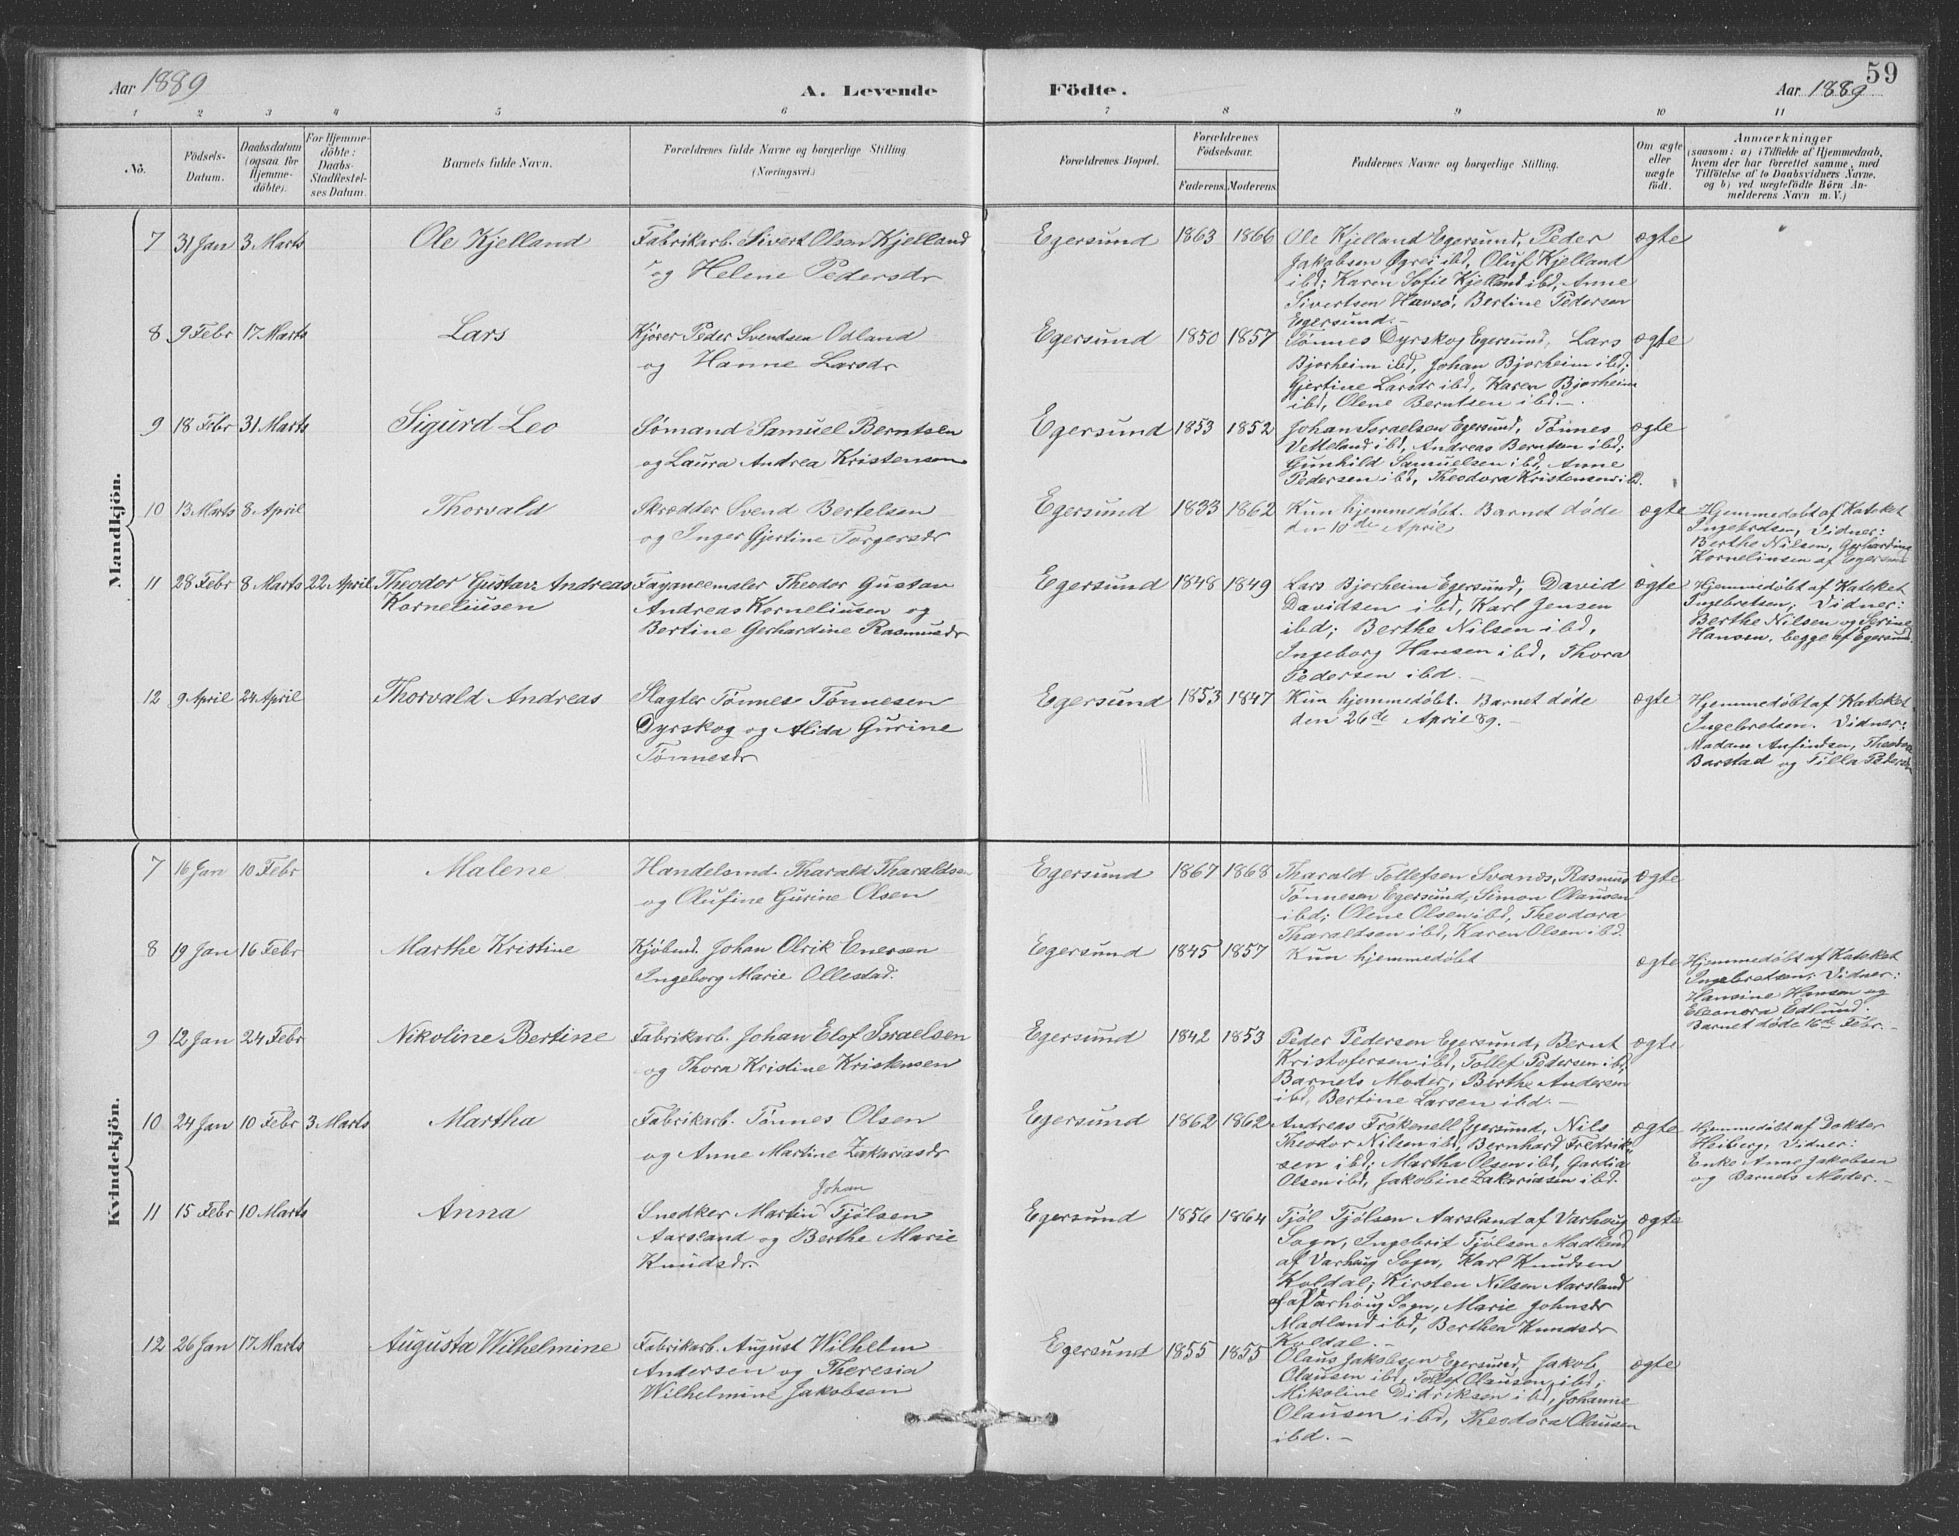 Aar 1889
A. Levende
Födte.
Aar 1889
59
1 2 3 4 5 6 7 8 9 10 11
No.
Födsels-
Datum.
Daabsdatum
(ogsaa for
Hjemme-
döbte).
For Hjemme-
döbte:
Daabs-
Stadfæstel-
ses Datum.
Barnets fulde Navn.
Forældrenes fulde Navne og borgerlige Stilling
(Næringsvei.)
Forældrenes Bopæl.
Forældrenes
Födselsaar.
Faderens. Moderens.
Faddernes Navne og borgerlige Stilling.
Om ægte
eller
uægte
födt.
Anmærkninger
(saasom: a) i Tilfælde af Hjemmedaab,
hvem der har forrettet samme, med
Tilföielse af to Daabsvidners Navne.
og b) ved uægtefödte Börn An-
melderens Navn m. V.)
Mandkjön.
7 31 Jan 3 Marts
Ole Kjelland
Fabrikarb. Sivert Olsen Kjelland
og Helene Pedersdr
Egersund 1863 1866
Ole Kjelland Egersund, Peder
Jakobsen Øgrei ibd, Oluf Kjelland
ibd; Karen Sofie Kjelland ibd, Anne
Sivertsen Havsö, Bertine Pedersen
Egersund.-
ægte
8 9 Febr 17 Marts
Lars
Kjører Peder Svendsen Odland
og Hanne Larsdr
Egersund 1850 1857
Tønnes Dyrskog Egersund, Lars
Bjorheim ibd, Johan Bjorheim ibd;
Gjertine Larsdr ibd, Karen Bjorheim
ibd, Olene Berntsen ibd.-
ægte
9 18 Febr 31 Marts
Sigurd Leo
Sømand Samuel Berntsen
og Laura Andrea Kristensen
Egersund 1853 1852
Johan Israelsen Egersund, Tønnes
Vetteland ibd, Andreas Berntsen ibd;
Gunhild Samuelsen ibd, Anne
Pedersen ibd, Theodora Kristensen ibd.
ægte
10 13 Marts 8 April
Thorvald
Skrædder Svend Bertelsen
og Inger Gjertine Torgersdr
Egersund 1833 1862
Kun hjemmedøbt. Barnet døde
den 10de April
ægte
Hjemmedøbt af Kateket
Vidner:
Berthe Nilsen, Gerhardine
Korneliusen af Egersund
11 28 Febr 8 Marts 22 April
Theodor Gustav Andreas
Korneliusen
Fayancemaler Theodor Gustav
Andreas Korneliusen og
Bertine Gerhardine Rasmusdr
Egersund 1848 1849
Lars Bjorheim Egersund, David
Davidsen ibd, Karl Jensen
ibd; Berthe Nilsen ibd,
Ingeborg Hansen ibd, Thora
Pedersen ibd.-
ægte
Hjemmedøbt af Kateket
Ingebretsen; Vidner:
Berthe Nilsen og Serine
Hansen, begge af Egersund.
12 9 April 24 April
Thorvald Andreas
Slagter Tønnes Tønnesen
Dyrskog og Alida Gurine
Tønnesdr
Egersund 1853 1847
Kun hjemmedøbt. Barnet døde
den 26de April 89.-
ægte
Hjemmedøbt af Kateket
Ingebretsen. Vidner:
Madam Anfindsen, Theodora
Barstad og Tilla Pedersen
Kvindekjön.
7 16 Jan 10 Febr
Malene
Handelsmd. Tharald Tharaldsen
og Olufine Gurine Olsen
Egersund 1867 1868
Tharald Tollefsen Svanæs, Rasmus
Tønnesen Egersund, Simon Olausen
ibd; Olene Olsen ibd, Theodora
Tharaldsen ibd, Karen Olsen ibd.
ægte
8 19 Jan 16 Febr
Marthe Kristine
Kjøbmd. Johan Olrik Enersen
Ingeborg Marie Ollestad.
Egersund 1845 1857
Kun hjemmedøbt
ægte
Hjemmedøbt af Kateket
Ingebretsen; Vidner:
Hansine Hansen og
Eleonora Edlund.
Barnet døde 16de Febr.-
9 12 Jan 24 Febr
Nikoline Bertine
Fabrikarb. Johan Elof Israelsen
og Thora Kristine Kristensen
Egersund 1842 1853
Peder Pedersen Egersund, Bernt
Kristofersen ibd, Tollef Pedersen ibd,
Barnets Moder, Birthe Andersen
ibd, Bertine Larsen ibd.-
ægte
10 24 Jan 10 Febr 3 Marts
Martha
Fabrikarb. Tønnes Olsen
og Anne Martine Zakariasdr
Egersund 1862 1862
Andreas Egersund, Nils
Theodor Nilsen ibd, Bernhard Fredrik-
sen ibd; Martha Olsen ibd,
Olsen ibd, Jakobine Zakariasen ibd.
ægte
Hjemmedøbt af Doktor
Heiberg, Vidner:
Enke Anne Jakobsen
og Barnets Moder.-
11 15 Febr 10 Marts
Anna
Johan
Snedker Martin Tjølsen
Aarsland og Berthe Marie
Knudsdr.
Egersund 1856 1864
Tjøl Tjølsen Aarsland af Varhoug
Sogn, Ingebrit Tjølsen Madland
af Varhoug Sogn, Karl Knudsen
Koldal; Kirsten Nilsen Aarsland
af Varhoug Sogn, Marie Johnsdr
Madland ibd, Berthea Knudsdr
Koldal.-
ægte
12 26 Jan 17 Marts
Augusta Wilhelmine
Fabrikarb. August Wilhelm
Andersen og Theresia
Wilhelmine Jakobsen
Egersund 1855 1855
Olaus Jakobsen Egersund, Jakob
Olausen ibd, Tollef Olausen, ibd;
Mikoline Didriksen ibd, Johanne
Olausen ibd, Theodora Olausen
ibd.-
ægte